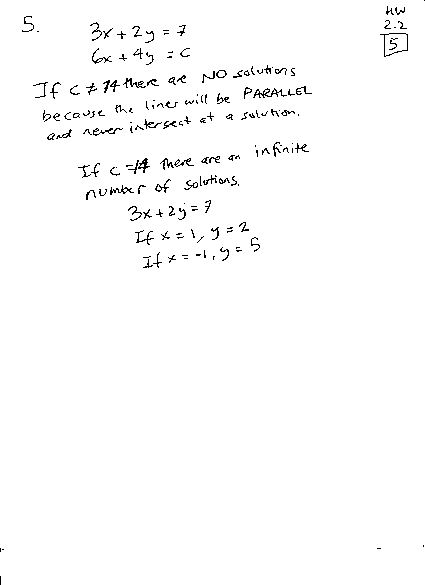 HW
2.2
5
5.
3x + 2y = 7
6x + 4y = c
If c ≠ 14 there are NO solutions
because the lines will be PARALLEL
and never intersect at a solution.
If c = 14 there are an infinite
number of solutions.
3x + 2y = 7
If x = 1, y = 2
If x = -1, y = 5